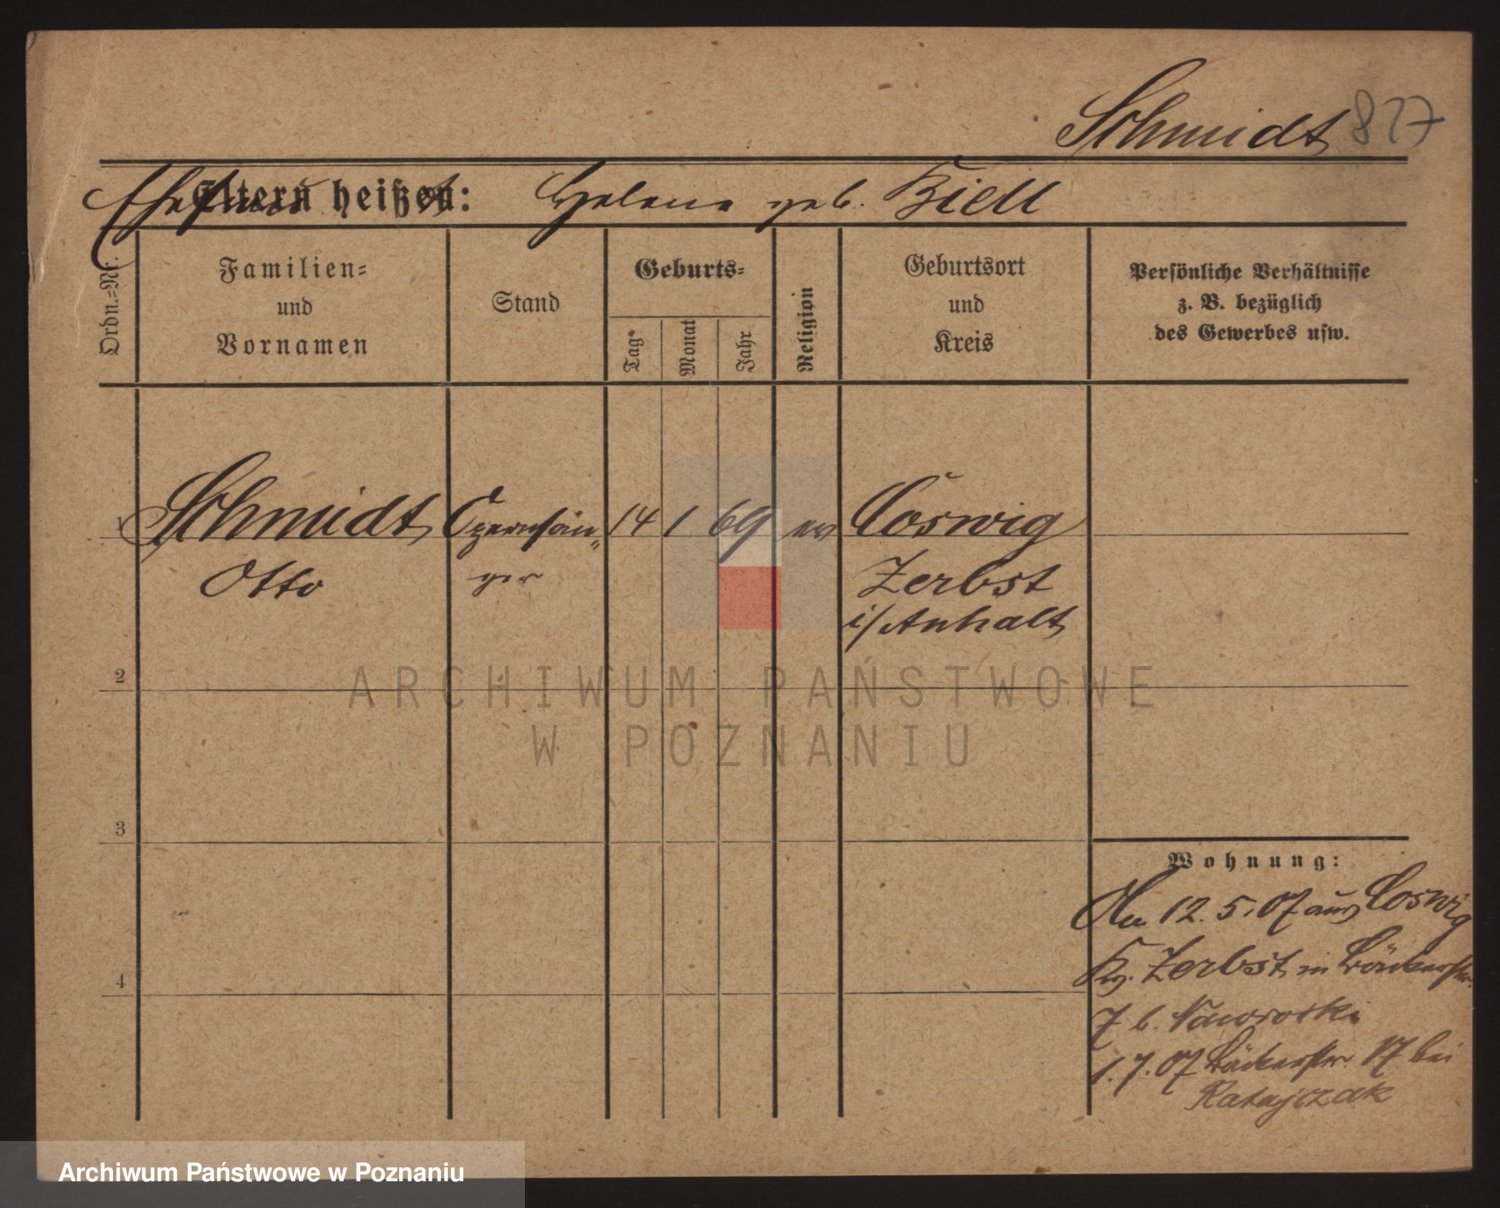 Schmidt 827
Eltern heißen: Helene geb. Kiell
Ordn.=Nr.
Familien=
und
Vornamen
Stand
Geburts=
Tag
Monat
Jahr
Religion
Geburtsort
und
Kreis
Persönliche Verhältnisse
z. B. bezüglich
des Gewerbes usw.
1 Schmidt, Opernsän„ 14 1 69 ev Coswig
Otto ger Zerbst
i/Anhalt
2
ARCHIWUM PAŃSTWOWE
W POZNANIU
3
Wohnung:
12. 5. 07 aus Coswig
Kr. Zerbst, in Bäckerstr.
4
7 b. Naworski
1. 7. 07 Bäckerstr. 17 bei
Ratajczak
Archiwum Państwowe w Poznaniu